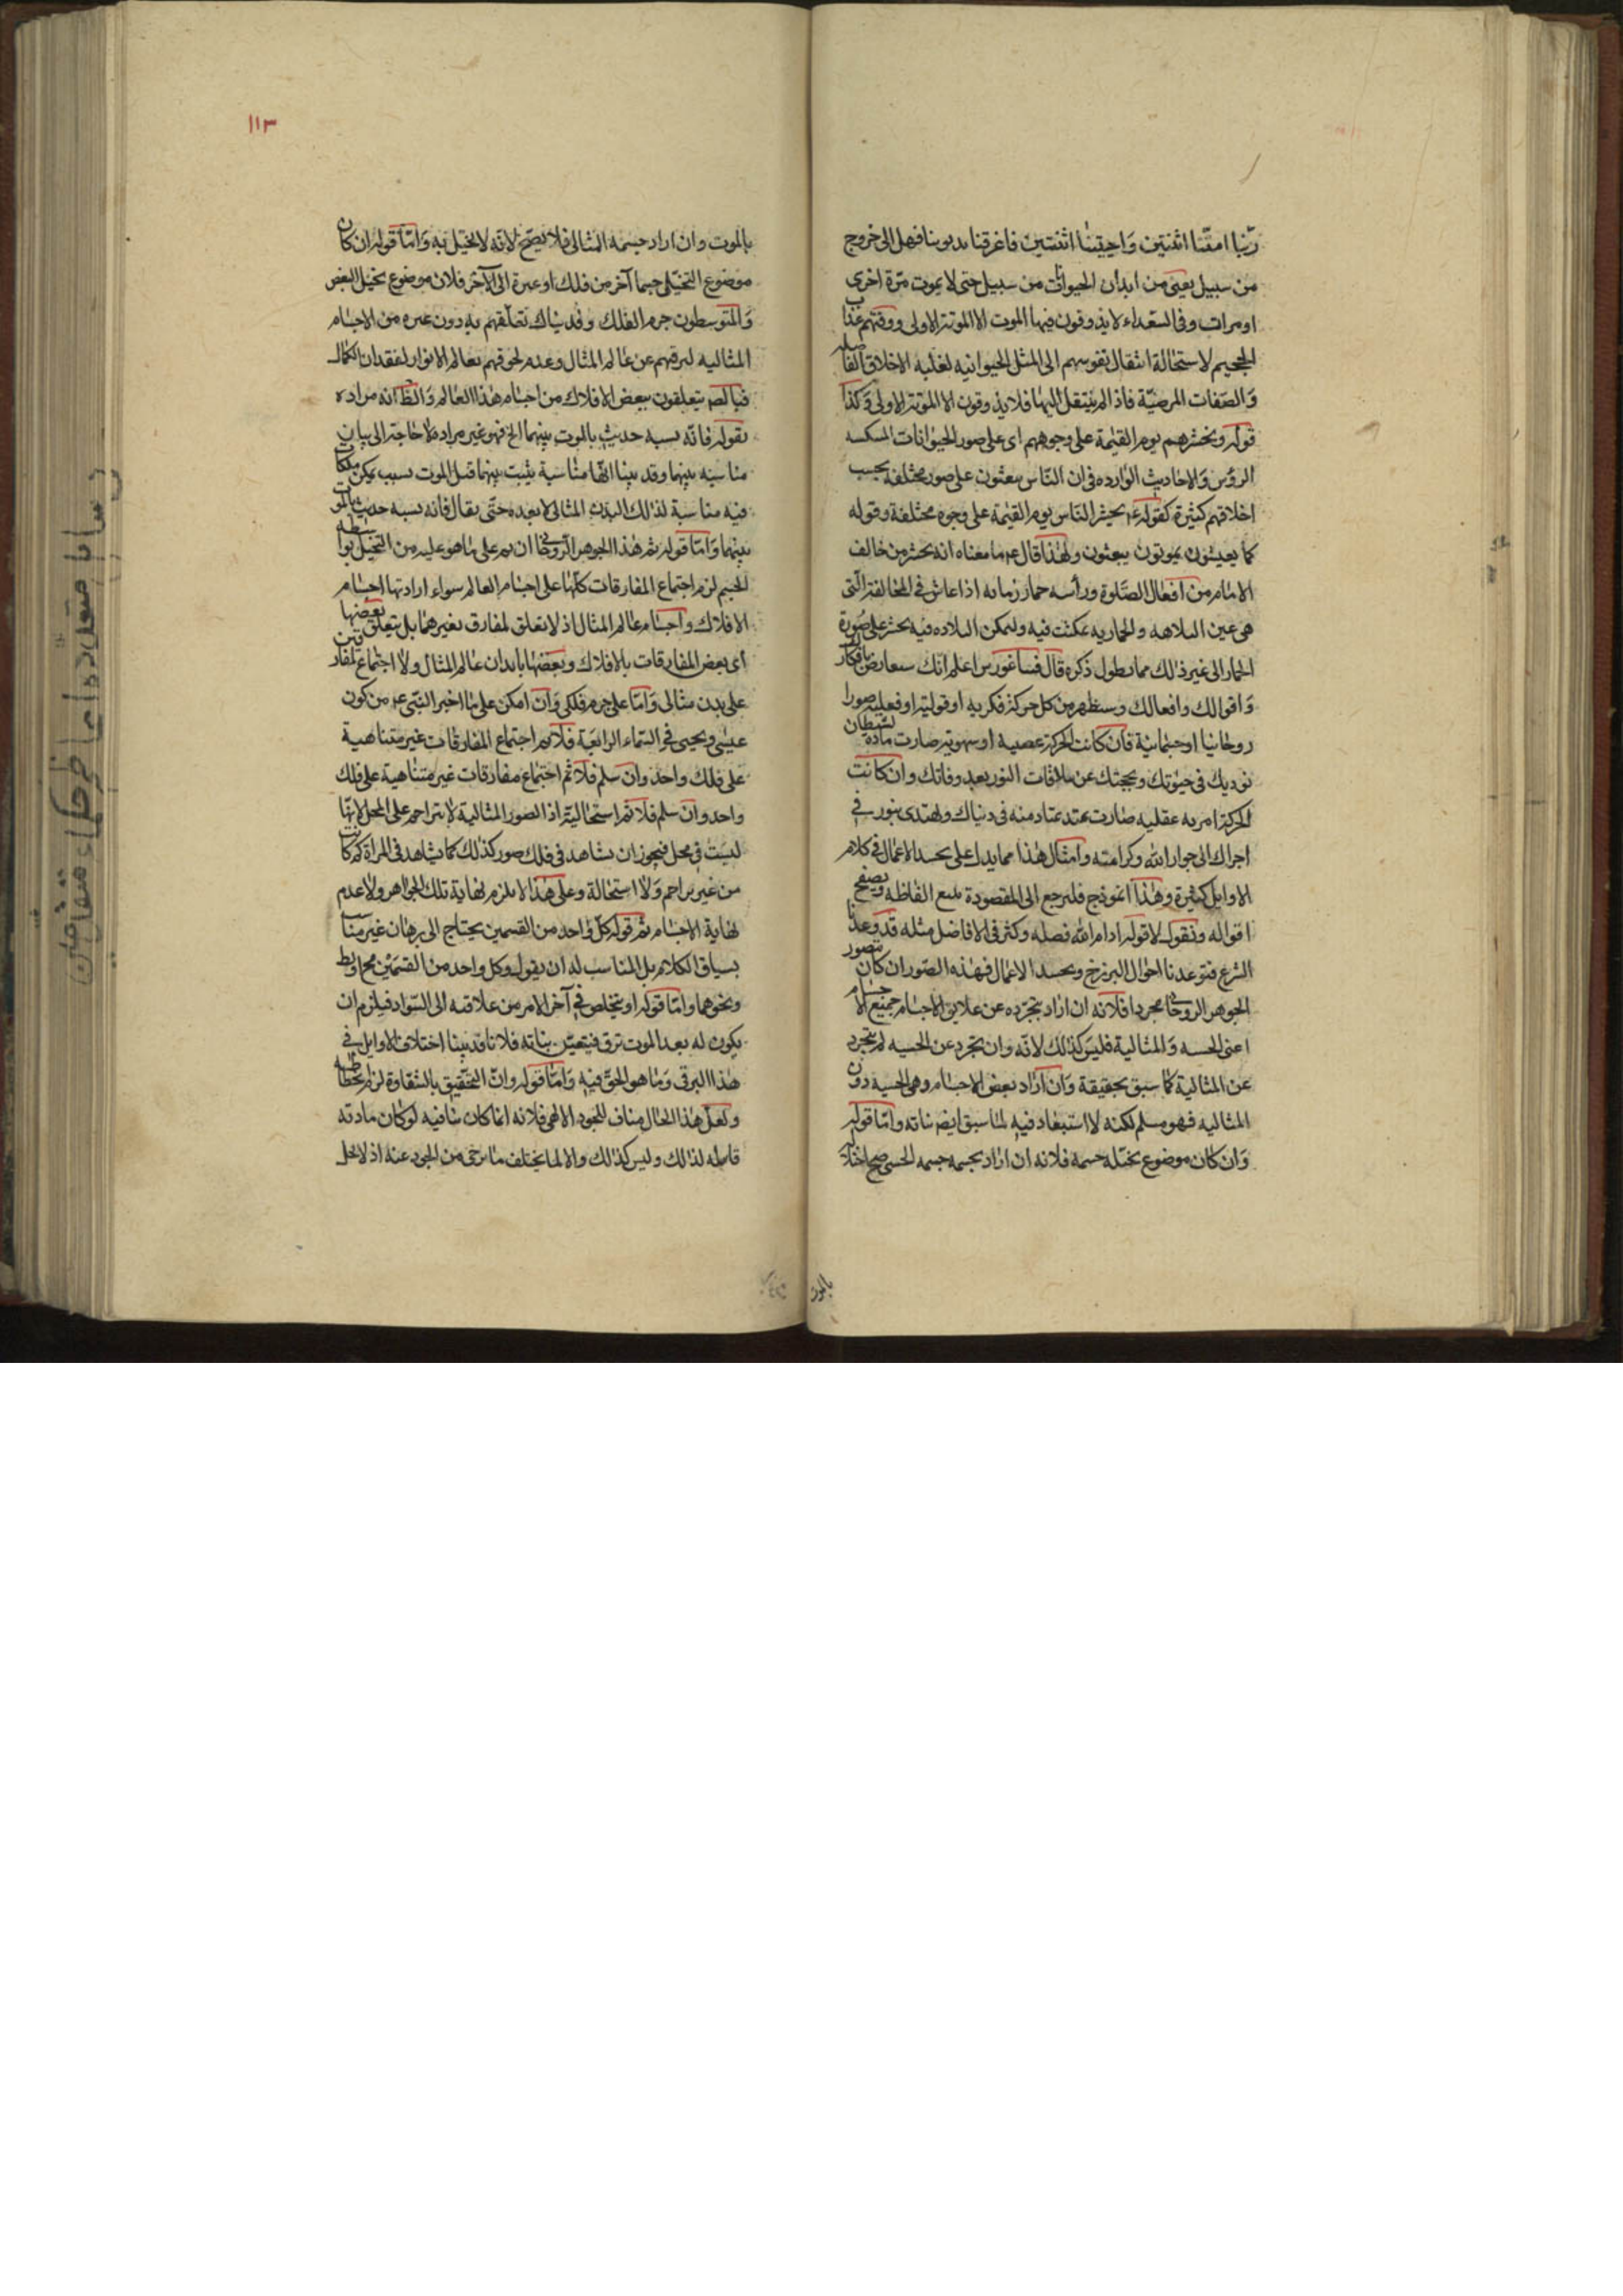 ربّنا امتّنا اثنتين وَاحييتنا اثنتين فاعترفنا بذنوبنا فهل الى خروج
من سبيل يعنى من ابدان الحيوانات من سبيل حتى لا يموت مرّة اخرى
او مرات وفى السّعداء لا يذوقون فيها الموت الا الموتة الاولى ووقيهم عذاب
الجحيم لاستحالة انتقال نفوسهم الى المثل الحيوانيه لغلبه الاخلاق الفاضله
وَالصّفات المرضيّة فاذا لم ينتقل اليها فلا يذوقون الا الموتة الاولى وَكذا
قوله ونحشرهم يوم القيمة على وجوههم اى على صور الحيوانات المنكسه
الرؤس وَالاحاديث الوارده فى ان النّاس يبعثون على صور مختلفة بحسب
اخلاقهم كثيرة كقوله عم يحشر النّاس يوم القيمة على وجوه مختلفة وقوله
كما يعيشون يموتون يبعثون ولهذا قال عم ما معناه انه يحشر من خالف
الامام من افعال الصّلوة ورأسه حمار زمانه اذا عاش فى المخالفة الّتى
هى عين البلاهه والحماريه تمكنت فيه ولتمكن البلاده فيه يحشر على صُورة
الحمار الى غير ذلك مما يطول ذكره قال فيثاغورس اعلم انّك ستعارض بافكارك
وَاقوالك وافعالك وسيظهر من كل حركة فكريه او قوليّة او فعليّة صورا
روحانيا او جسمانيّة فان كانت الحركة غضبية او شهويّة صارت مادة لشيطان
توذيك فى حيوتك ويحجبك عن ملاقات النور بعد وفاتك وان كانت
الحركة امريه عقليه صارت ملكا تلتذ بمنادمته فى دنياك وتهتدى بنوره فى
اخراك الى جوار الله وكرامته وامثال هٰذا مما يدل على تجسد الاعمال فى كلام
الاوايل كثيرة وهٰذا انموذج فلنرجع الى المقصود تتبع الفاظه وتصفح
اقواله ونقول لا قوله ادام الله فضله وكثر فى الافاضل مثله قد وعدنا
الشرع فتوعدنا احوال البرزخ وتجسد الاعمال فهذه الصّور ان كان تصور
الجوهر الروحانى مجردا فلانه ان اراد بتجرّده عن علايق الاجسام جميع الاجسام
اعنى الحسيه وَالمثالية فليس كذلك لانّه وان تجرد عن الحسيه لم يتجرد
عن المثالية كما سبق تحقيقه وَان اراد بعض الاجسام وهى الحسيه دون
المثاليه فهو مسلم لكنه لا استبعاد فيه لما سبق ايضا بيانه وامّا قوله
وَان كان موضوع تخيّله جسمه فلانه ان اراد بجسمه جسمه الحسى صح اختلاله
بالموت
١١٣
بالموت وان اراد جسمه المثالى فلا يصّح لانّه لا يختل به وَامّا قوله ان كان
موضوع التخيّل جسما آخر من فلك او غيره الى آلاخر فلان موضوع تخيل البعض
وَالمتوسطون جرم الفلك وقد بيناك تعلّقهم به دون غيره من الاجسام
المثاليه لترقيهم عن عالم المثال وعدم لحوقهم بعالم الانوار لفقدان الكمال
فبالضرورة يتعلقون ببعض الافلاك من اجسام هٰذا العالم وَالظّ انه مراده
بقوله فانّه نسبه حديث بالموت بينهما الخ فهو غير مراده ولا حاجة الى بيان
مناسبه بينهما وقد بينا انّها مناسبة يثبت بينهما قبل الموت بسبب تمكن ملكات
فيه مناسبة لذلك البدن المثالى لا بعده حتّى يقال فانه نسبه حديث بالموت
بينهما وَامّا قوله ثم هٰذا الجوهر الرّوحانى ان بقى على ما هو عليه من التخيّل بواسطه
الجسم لزم اجتماع المفارقات كلّها على اجسام العالم سواء اراد بها اجسام
الافلاك واجسام عالم المثال اذ لا تعلق لمفارق بغيرهما بل يتعلق بعضها
اى بعض المفارقات بالافلاك وبعضها بابدان عالم المثال ولا اجتماع لمفارقين
على بدن مثالى وَامّا على جرم فلكى وَان امكن على ما اخبر النّبى عم من كون
عيسٰى ويحيى فى السّماء الرابعة فلا ثم اجتماع المفارقات غير متناهية
على فلك واحد وان سلم فلا ثم اجتماع مفارقات غير متناهية على فلك
واحد وان سلم فلا ثم استحالته اذ الصور المثالية لا تتزاحم على المحل لانّها
ليست فى محل فيجوز ان تشاهد فى فلك صور كذلك كما يشاهد فى المرآة كرة كانت
من غير تزاحم وَلا استحالة وعلى هٰذا لا يلزم نهاية تلك الجواهر ولا عدم
نهاية الاجسام ثم قوله كلّ واحد من القسمين يحتاج الى برهان غير مناسب
بسياق الكلام بل المناسب له ان يقول وكل واحد من القسمَيْن مح او بط
ونحوهما وامّا قوله او يتخلص فى آخر الامر من علاقته الى السّواد فيلزم ان
يكون له بعد الموت ترق فيتعيّن بيانه فلانا قد بينا اختلاف الاوايل فى
هٰذا البرقى وَما هو الحقّ فيه وَامّا قوله وانّ التحقيق بالشقاوة لزم
ولعلّ هٰذا الحال مناف للجود الالهى فلانه انما كان ينافيه لو كان مادته
قابله لذلك وليس كذلك والا لما يختلف ما يرجى من الجود عنه اذ لا بخل